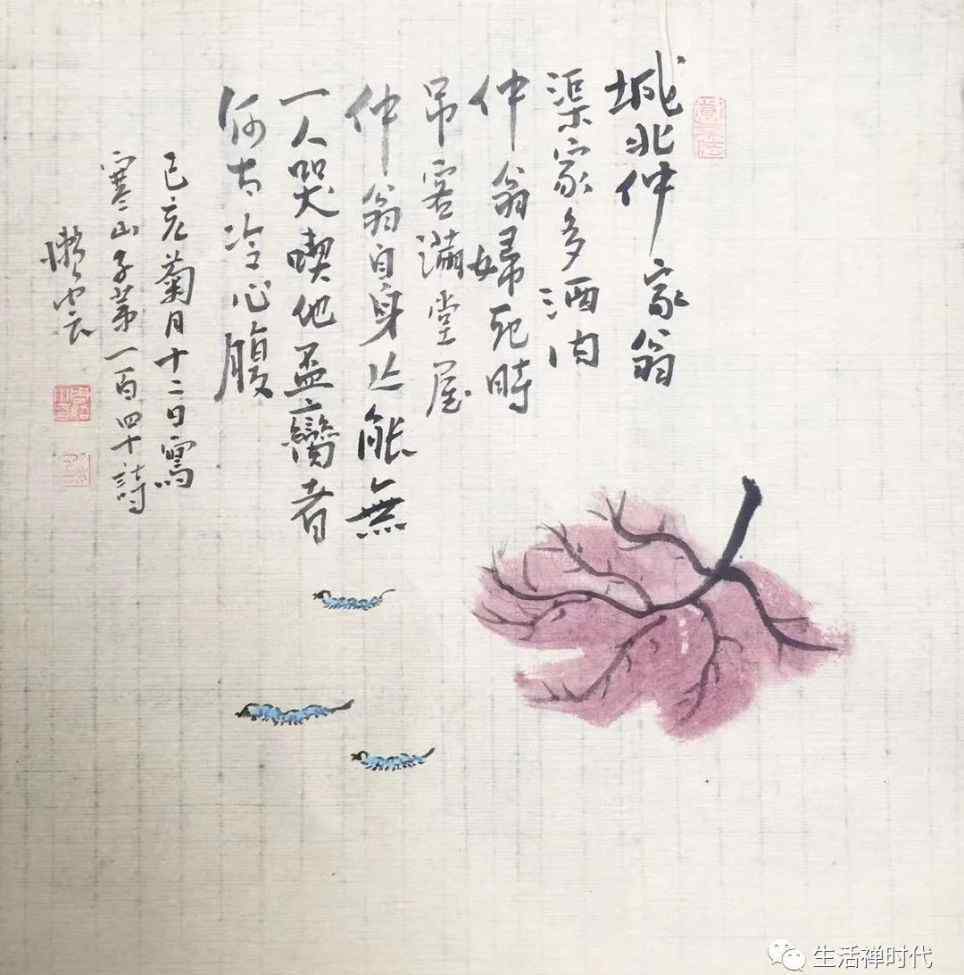 城北仲家翁
渠家多酒肉
仲翁婦死時
吊客滿堂屋
仲翁自身亡能無
一人哭喫他盃臠者
何太冷心腹
己亥菊月十二日寫
寒山子第一百四十詩
生活禅时代